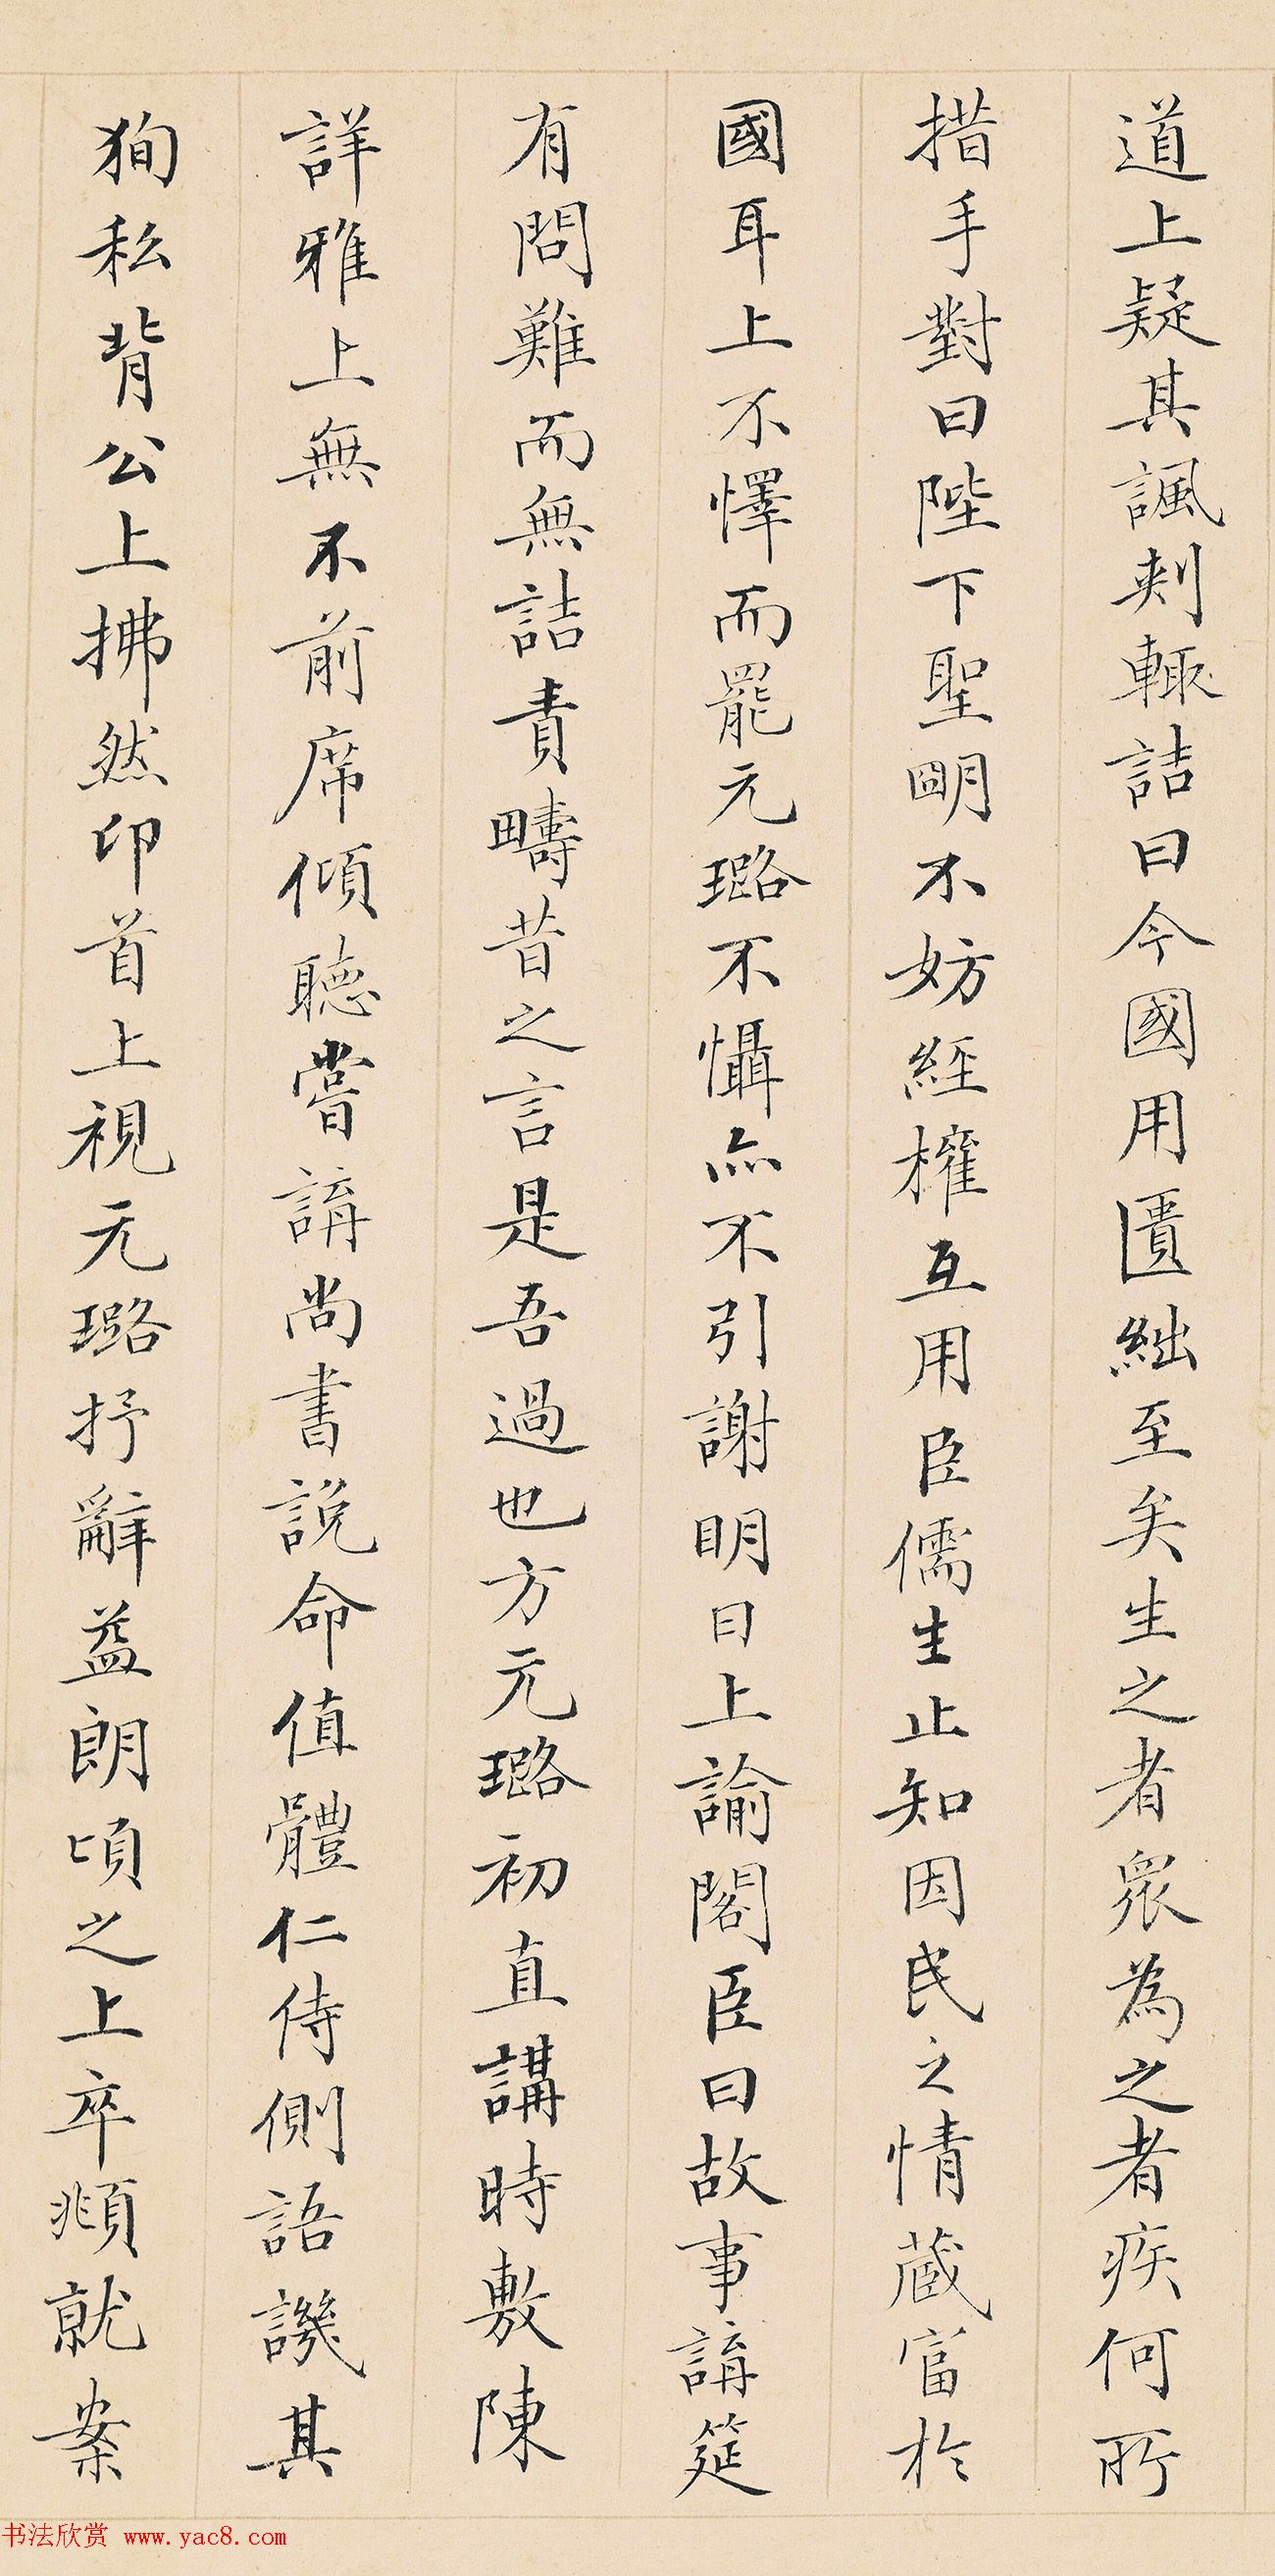 道上疑其諷刺輙詰曰今國用匱絀至矣生之者衆為之者疾何所
措手對曰陛下聖明不妨經權互用臣儒生止知因民之情蔵富於
國耳上不懌而罷元璐不懾亦不引謝明日上諭閣臣曰故事講筵
有問難而無詰責疇昔之言是吾過也方元璐初直講時敷陳
詳雅上無不前席傾聽嘗講尚書說命值體仁侍側語譏其
狥私背公上拂然卬首上視元璐抒辭益朗頃之上卒頫就案
书法欣赏 www.yac8.com